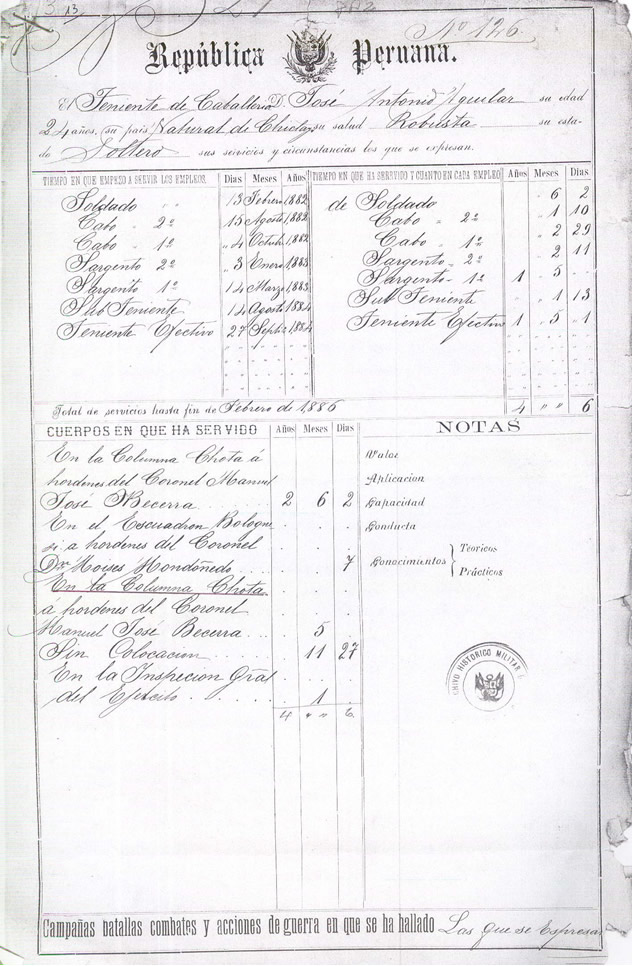 13 13
Nº 126.
República Peruana.
El Teniente de Caballeria D. José Antonio Aguilar su edad
24 años, su pais Natural de Chiclayo su salud Robusta su esta-
do Soltero sus servicios y circunstancias los que se expresan.
TIEMPO EN QUE EMPEZÓ A SERVIR LOS EMPLEOS. Dias Meses Años
Soldado " " 13 Febrero 1,882
Cabo " 2º 15 Agosto 1,882
Cabo " 1º " 4 Octub. 1,882
Sargento 2º " 3 Enero 1,883
Sargento 1º 14 Marzo 1,883
Sub Teniente 14 Agosto 1,884
Teniente Efectivo 27 Septe. 1,884
TIEMPO EN QUE HA SERVIDO Y CUANTO EN CADA EMPLEO Años Meses Dias
de Soldado " 6 2
Cabo " 2º " 1 19
Cabo " 1º " 2 29
Sargento " 2º " 2 11
Sargento " 1º 1 5 .
Sub Teniente " 1 13
Teniente Efectivo 1 5 1
Total de servicios hasta fin de Febrero de 1,886 4 " " 6
CUERPOS EN QUE HA SERVIDO Años Meses Dias
En la Columna Chota á
hordenes del Coronel Manuel
José Becerra 2 6 2
En el Escuadron Bologne
si a hordenes del Coronel
Dn Moises Mondoñedo 7
En la Columna Chota
á hordenes del Coronel
Manuel José Becerra 5
Sin Colocacion 11 27
En la Inspecion Gral
del Ejército 1
4 " " 6
NOTAS
Valor
Aplicacion
Capacidad
Conducta
Conocimientos
Teoricos
Prácticos
CHIVO HISTORICO MILITAR
Campañas batallas combates y acciones de guerra en que se ha hallado Las que se Espresan